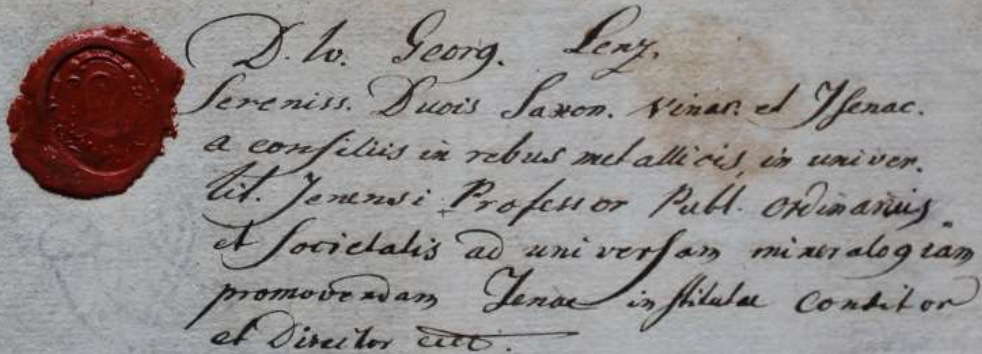 D. Io. Georg. Lenz,
Sereniss. Ducis Saxon. Vinar. et Isenac.
a consiliis in rebus metallicis, in univer.
sit. Jenensi Professor Publ. ordinarius
et Societatis ad universam mineralogiam
promovendam Jenae institutae Conditor
et Director